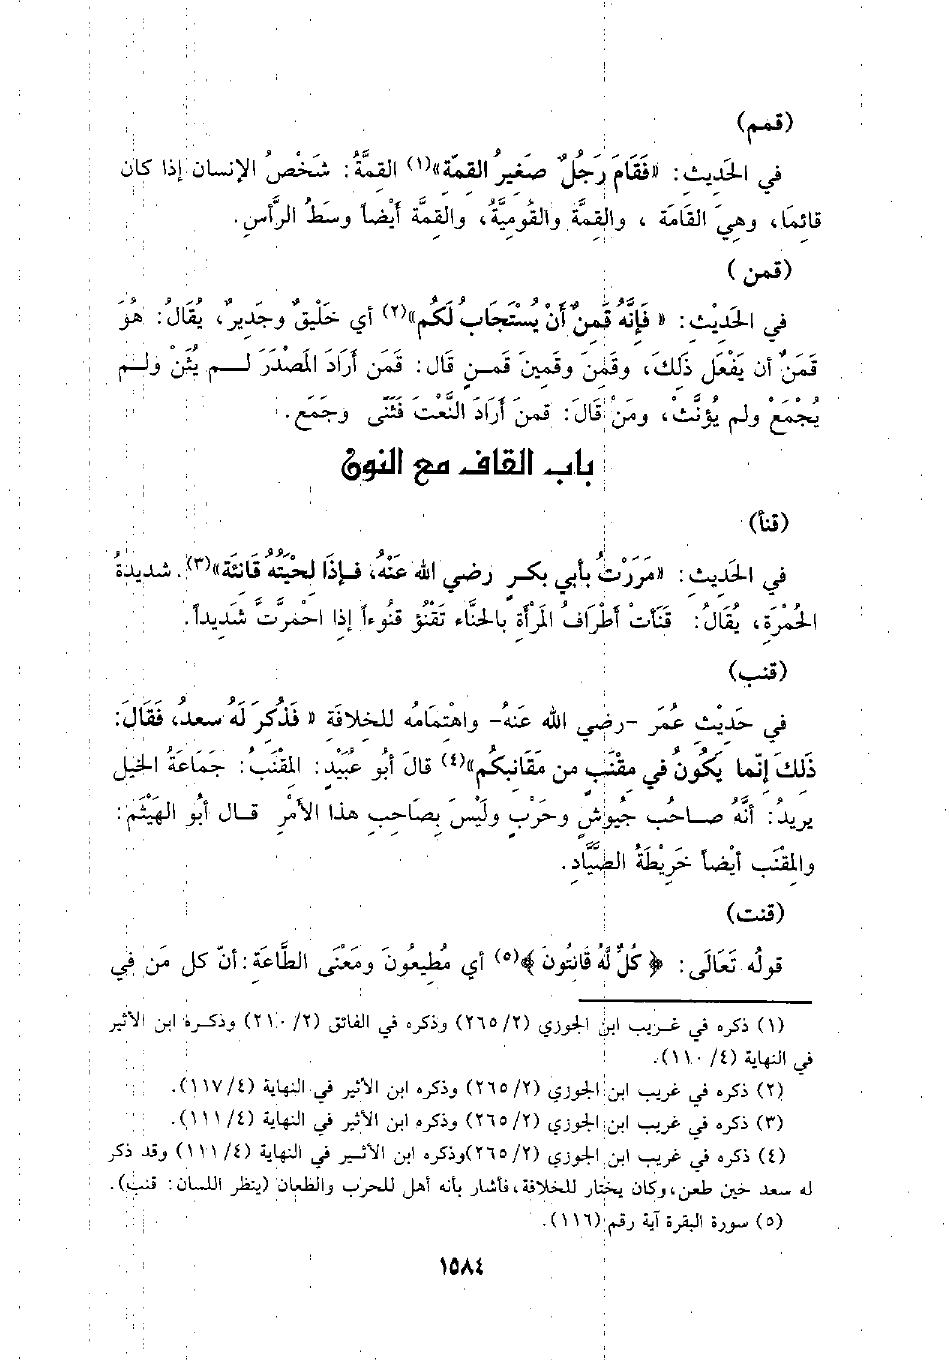 (قمم)
في الحَدِيثِ: «فَقَامَ رَجُلٌ صَغِيرُ القِمّة»(١) القِمَّةُ: شَخْصُ الإنسان إذا كان
قائِمًا، وهِيَ القَامَة ، والقِمَّة والقُومِيَّةُ، والقِمَّة أيْضاً وسَطُ الرَّأسِ.
(قمن )
في الحَدِيْثِ: « فَإِنَّهُ قَمِنٌ أَنْ يُسْتَجَابُ لَكُم»(٢) أي خَلِيْقٌ وجَدِيرٌ، يُقَالُ: هُوَ
قَمَنٌ أن يَفْعَل ذَلِكَ، وقَمِنَ وقَمِينَ قَمـنٍ قَال: قَمَن أرَادَ المَصْدَرَ لـــم يُثَنْ ولـم
يُجْمَعْ ولم يُؤنَّثْ، ومَنْ قَالَ: قمنَ أرَادَ النَّعْتَ فَثَنّى وجَمَع.
باب القاف مع النون
(قنأ)
في الحَدِيثِ: «مَرَرْتُ بأبي بكـرٍ رضي الله عَنْهُ، فـإذَا لِحْيَتُهُ قَانِئَة»(٣). شديدةُ
الحُمْرَةِ، يُقَالُ: قَنَأتْ أطْرَافُ المَرْأةِ بالحَنَّاء تَقْنُؤ قنُوءاً إذا احْمرَّتَّ شَدِيداً.
(قنب)
في حَدِيْثِ عُمَرَ -رضي الله عَنهُ- واهْتِمَامُه للخِلافَةِ « فَذُكِرَ لَهُ سعدُ، فَقَالَ:
ذَلكَ إنّما يَكُونُ في مِقْنَبٍ من مَقَانِبكُم»(٤) قالَ أبُو عُبَيْدٍ: المِقْنَبُ: جَمَاعَةُ الخيل
يريدُ: أنَّهُ صــاحُب جيُوشٍ وحَرْبٍ ولَيْسَ بِصَاحِبِ هذا الأمْرِ قــال أبُو الهَيْثَم:
والمِقْنَب أيْضاً خَرِيطَةُ الصَّيَّادِ.
(قنت)
قولُه تَعَالَى: ﴿ كُلٌّ لَهُ قَانتُونَ ﴾(٥) أي مُطِيعُونَ ومَعْنَى الطَّاعَةِ: أنّ كل مَن في
(١) ذكره في غـريب ابن الجوزي (٢٦٥/٢) وذكره في الفائق (٢١٠/٢) وذكـره ابن الأثير
في النهاية (١١٠/٤).
(٢) ذكره في غريب ابن الجوزي (٢٦٥/٢) وذكره ابن الأثير في النهاية (١١٧/٤).
(٣) ذكره في غريب ابن الجوزي (٢٦٥/٢) وذكره ابن الأثير في النهاية (١١١/٤).
(٤) ذكره في غريب ابن الجوزي (٢٦٥/٢)وذكره ابن الأثـير في النهاية (١١١/٤) وقد ذكر
له سعد حين طعن،وكان يختار للخلافة،فأشار بأنه أهل للحرب والطعان (ينظر اللسان: قنب).
(٥) سورة البقرة آية رقم (١١٦).
١٥٨٤